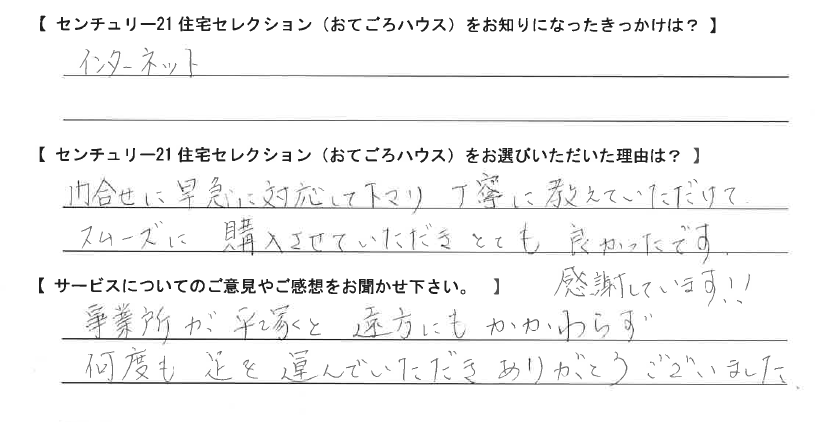 【 センチュリー21 住宅セレクション（おてごろハウス）をお知りになったきっかけは？ 】
インターネット
【 センチュリー21 住宅セレクション（おてごろハウス）をお選びいただいた理由は？ 】
問合せに早急に対応して下さり 丁寧に教えていただけて
スムーズに 購入させていただき とても 良かったです.
感謝しています!!
【 サービスについてのご意見やご感想をお聞かせ下さい。 】
事業所が 平塚と 遠方にもかかわらず
何度も 足を 運んでいただき ありがとうございました.